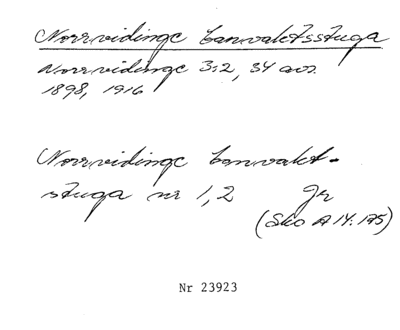 Norrvidinge banvaktsstuga
Norrvidinge 3:2, 34 avs.
1898, 1916
Norrvidinge banvakt-
stuga nr 1, 2 gr
(Sko A 14:195)
Nr 23923